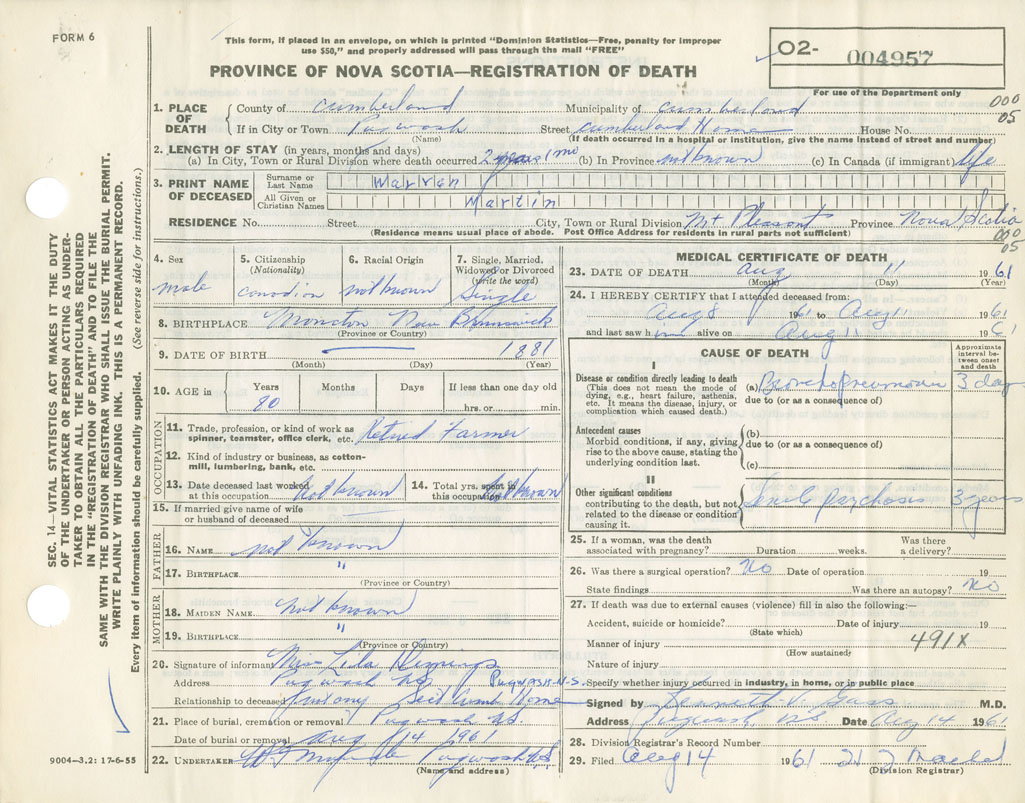 FORM 6
This form, if placed in an envelope, on which is printed "Dominion Statistics—Free, penalty for improper
use $50," and properly addressed will pass through the mail "FREE"
PROVINCE OF NOVA SCOTIA—REGISTRATION OF DEATH
O2- 004957
For use of the Department only
000
05
1. PLACE OF DEATH
County of Cumberland Municipality of Cumberland
If in City or Town Pugwash Street Cumberland Home House No.
(Name) (If death occurred in a hospital or institution, give the name instead of street and number)
2. LENGTH OF STAY (in years, months and days)
(a) In City, Town or Rural Division where death occurred 2 years 1 mo (b) In Province not known (c) In Canada (if immigrant) life
3. PRINT NAME OF DECEASED
Surname or Last Name Warren
All Given or Christian Names Martin
RESIDENCE No. Street City, Town or Rural Division Mt Pleasant Province Nova Scotia
(Residence means usual place of abode. Post Office Address for residents in rural parts not sufficient)
000
05
4. Sex male
5. Citizenship (Nationality) Canadian
6. Racial Origin not known
7. Single, Married, Widowed or Divorced (write the word) Single
8. BIRTHPLACE Moncton New Brunswick
(Province or Country)
9. DATE OF BIRTH 1881
(Month) (Day) (Year)
10. AGE in Years 80 Months Days If less than one day old
hrs. or min.
OCCUPATION
11. Trade, profession, or kind of work as spinner, teamster, office clerk, etc. Retired Farmer
12. Kind of industry or business, as cotton-mill, lumbering, bank, etc.
13. Date deceased last worked at this occupation not known
14. Total yrs. spent in this occupation not known
15. If married give name of wife or husband of deceased
FATHER
16. NAME not known
17. BIRTHPLACE "
(Province or Country)
MOTHER
18. MAIDEN NAME not known
19. BIRTHPLACE "
(Province or Country)
20. Signature of informant Lila
Address Pugwash NS PUGWASH N.S.
Relationship to deceased Home
21. Place of burial, cremation or removal Pugwash N.S.
Date of burial or removal Aug 14 1961
22. UNDERTAKER Pugwash N.S.
(Name and address)
MEDICAL CERTIFICATE OF DEATH
23. DATE OF DEATH Aug 11 1961
(Month) (Day) (Year)
24. I HEREBY CERTIFY that I attended deceased from:
Aug 8 1961 to Aug 11 1961
and last saw him alive on Aug 11 1961
CAUSE OF DEATH
Approximate interval between onset and death
I
Disease or condition directly leading to death
(This does not mean the mode of dying, e.g., heart failure, asthenia, etc. It means the disease, injury, or complication which caused death.)
(a) Bronchopneumonia 3 days
due to (or as a consequence of)
Antecedent causes
Morbid conditions, if any, giving rise to the above cause, stating the underlying condition last.
(b)
due to (or as a consequence of)
(c)
II
Other significant conditions
contributing to the death, but not related to the disease or condition causing it.
Senile psychosis 3 years
25. If a woman, was the death associated with pregnancy? Duration weeks. Was there a delivery?
26. Was there a surgical operation? No Date of operation 19
State findings Was there an autopsy? No
27. If death was due to external causes (violence) fill in also the following:—
Accident, suicide or homicide? Date of injury 19
(State which)
Manner of injury 491X
(How sustained)
Nature of injury
Specify whether injury occurred in industry, in home, or in public place
Signed by Kenneth V. Gass M.D.
Address Pugwash, NS Date Aug 14 1961
28. Division Registrar's Record Number
29. Filed Aug 14 1961
(Division Registrar)
SEC. 14—VITAL STATISTICS ACT MAKES IT THE DUTY
OF THE UNDERTAKER OR PERSON ACTING AS UNDER-
TAKER TO OBTAIN ALL THE PARTICULARS REQUIRED
IN THE "REGISTRATION OF DEATH" AND TO FILE THE
SAME WITH THE DIVISION REGISTRAR WHO SHALL ISSUE THE BURIAL PERMIT.
WRITE PLAINLY WITH UNFADING INK. THIS IS A PERMANENT RECORD.
Every item of information should be carefully supplied. (See reverse side for instructions.)
9004—3.2: 17-6-55